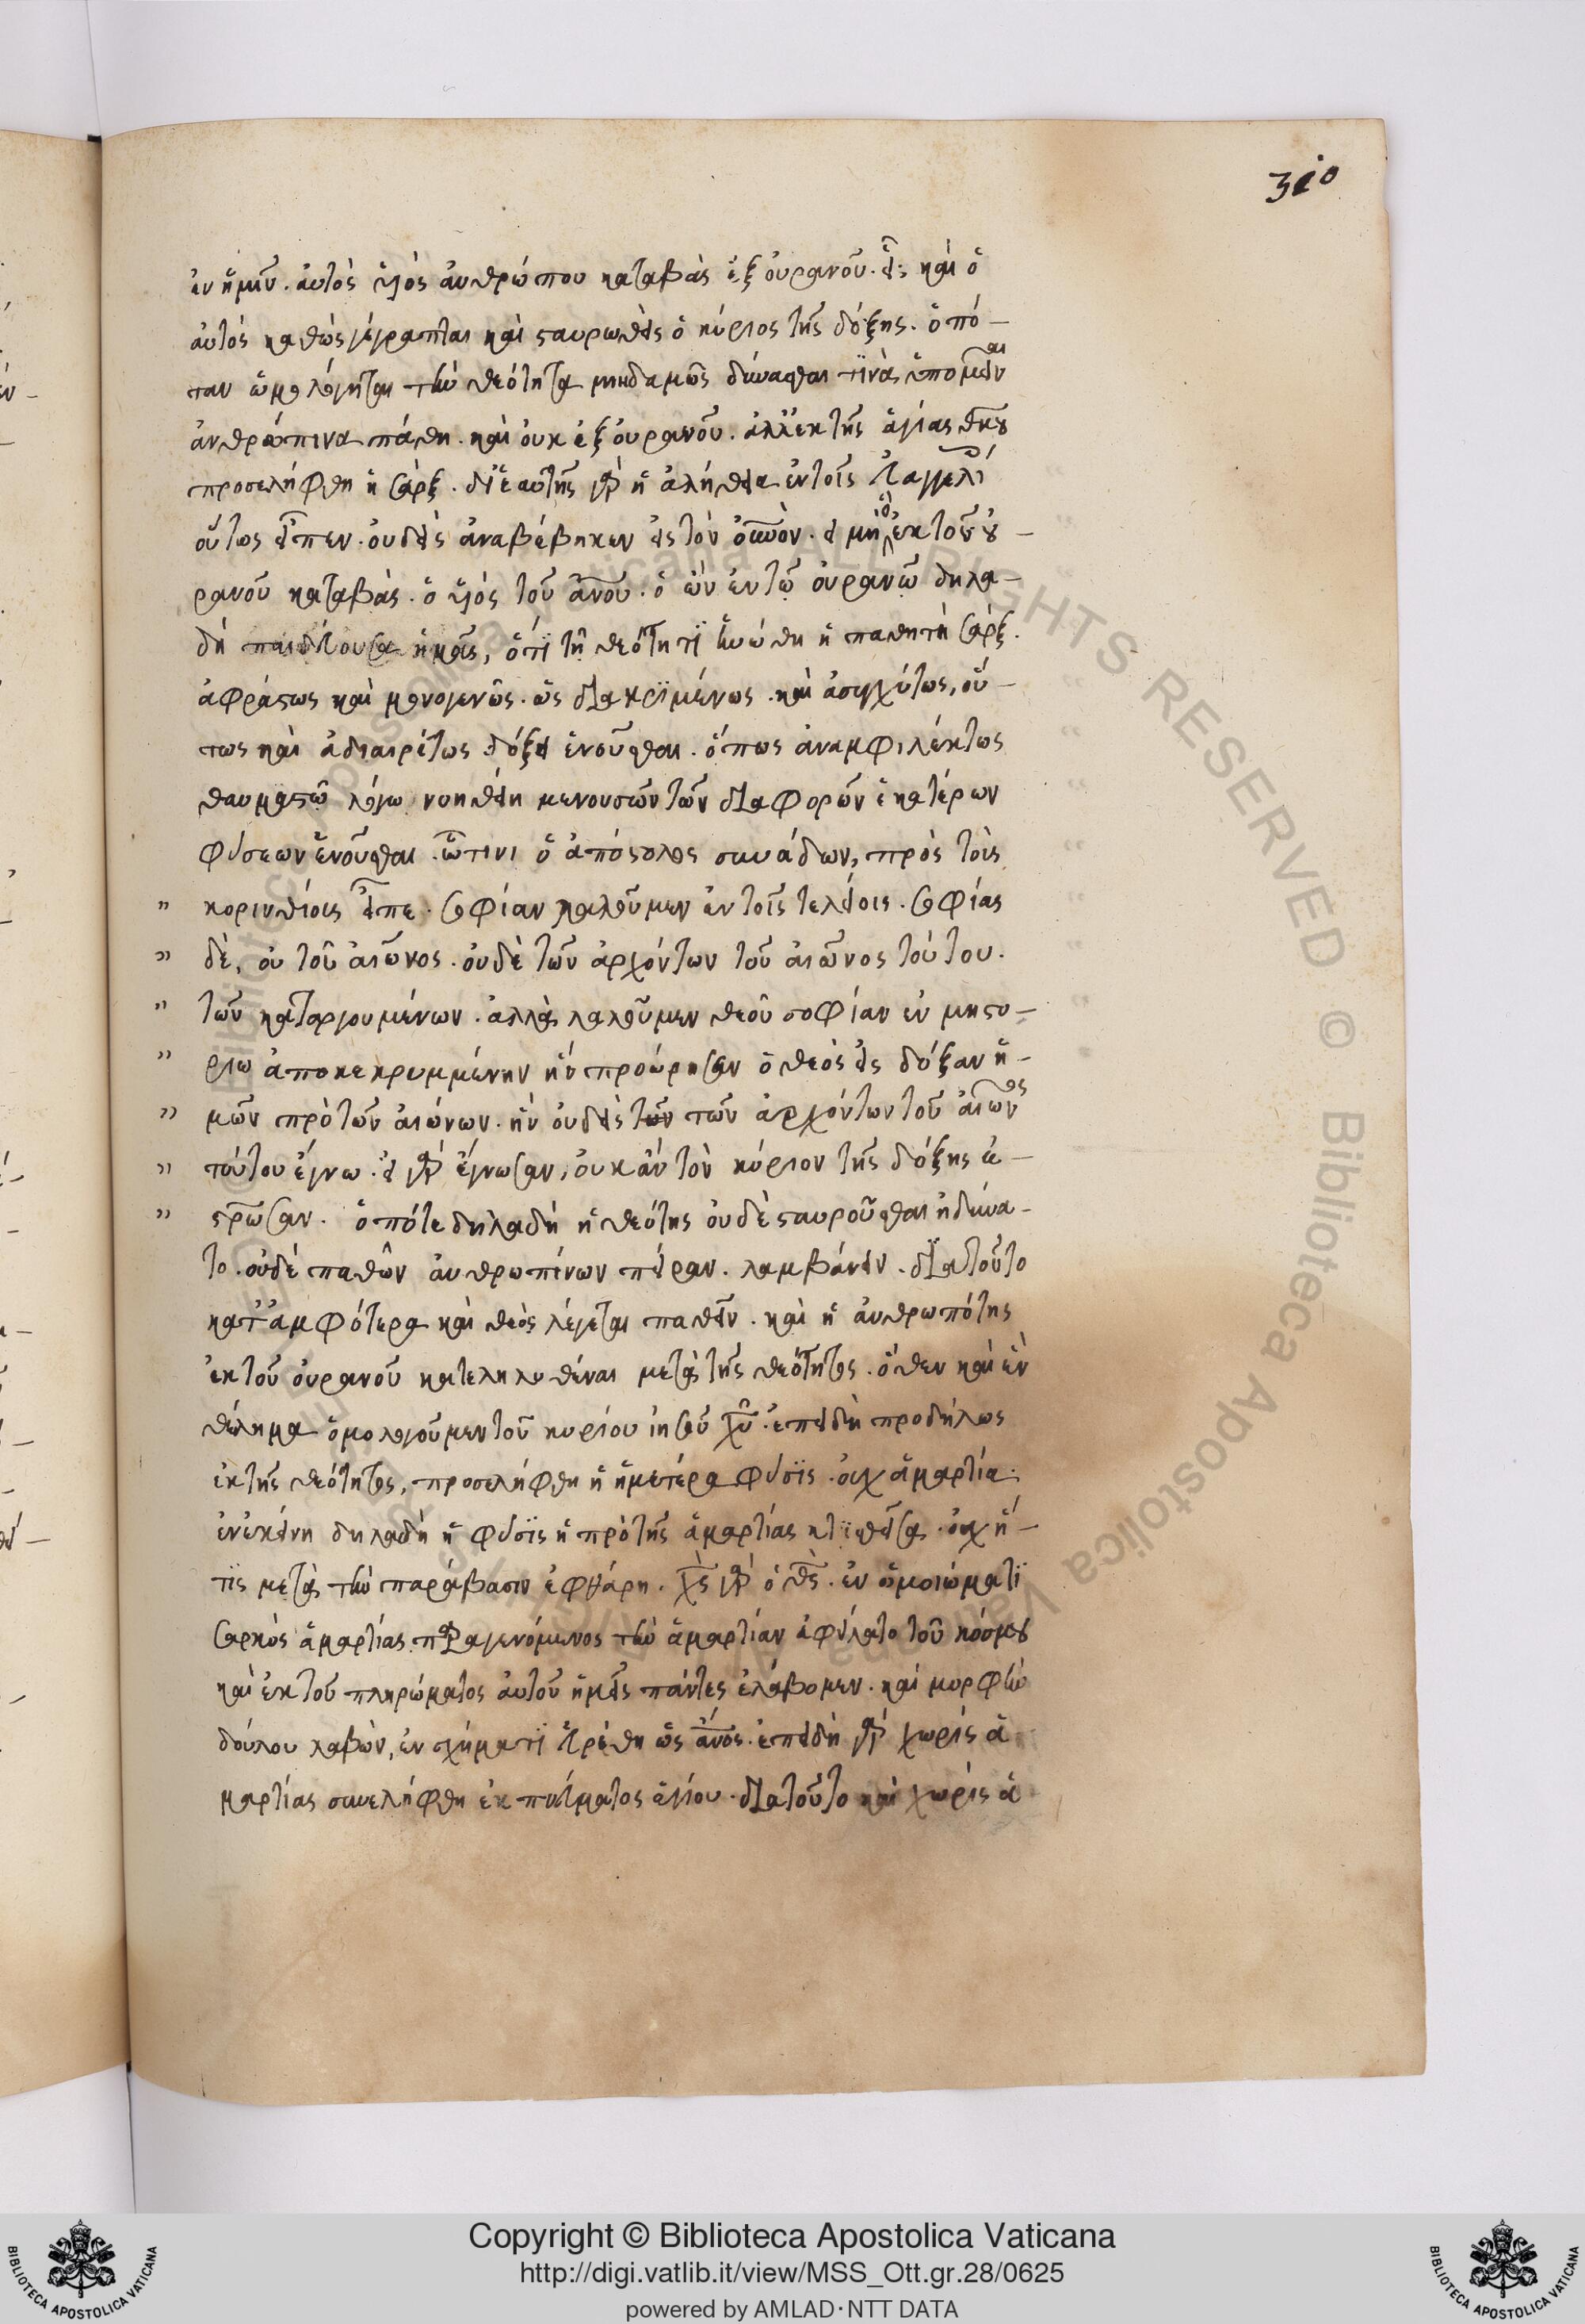 310
ἐν ἡμῖν. αὐτὸς ὑιὸς ἀνθρώπου καταβὰς ἐξ οὐρανοῦ. εἷς καὶ ὁ
αὐτός καθὼς γέγραπται καὶ σταυρωθεὶς ὁ κύριος τῆς δόξης. ὁπό-
ταν ὡμολόγηται τὴν θεότητα μηδαμῶς δύνασθαι τινὰς ὑπομεῖναι
ἀνθρώπινα πάθη. καὶ οὐκ ἐξ οὐρανοῦ. ἀλλ' ἐκ τῆς ἁγίας θκου
προσελήφθη ἡ σάρξ. δι' ἑαυτῆς γὰρ ἡ ἀλήθεια ἐν τοῖς εὐαγγελί
οὕτως εἶπεν. οὐδεὶς ἀναβέβηκεν εἰς τὸν οὐνὸν. εἰ μὴ ὁ ἐκ τοῦ οὐ-
ρανοῦ καταβὰς. ὁ ὑιὸς τοῦ ἀνου. ὁ ὢν ἐν τῷ οὐρανῷ δηλα-
δὴ παιδεύουσα ἡμᾶς, ὅτι τῇ θεότητι ἡνώθη ἡ παθητὴ σάρξ.
ἀφράστως καὶ μονογενῶς. ὡς διακριμένως. καὶ ἀσυγχύτως, οὕ-
τως καὶ ἀδιαιρέτως δόξει ἑνοῦσθαι. ὅπως ἀναμφιλέκτως
θαυμαστῷ λόγω νοηθείη μενουσῶν τῶν διαφορῶν ἑκατέρων
φύσεων ἡνοῦσθαι. ᾧτινι ὁ ἀπόστολος συνάδων, πρὸς τοὺς
" κορινθίους εἶπε. σοφίαν λαλοῦμεν ἐν τοῖς τελείοις. σοφίας
" δὲ, οὐ τοῦ αἰῶνος. οὐδὲ τῶν ἀρχόντων τοῦ αἰῶνος τούτου.
" τῶν καταργουμένων. ἀλλὰ λαλοῦμεν θεοῦ σοφίαν ἐν μηστυ-
" ρίω ἀποκεκρυμμένην ἣν προώρησαν ὁ θεὸς εἰς δόξαν ἡ-
" μῶν πρὸ τῶν αἰώνων. ἣν οὐδεὶς των τῶν ἀρχόντων τοῦ αἰῶνος
" τούτου ἔγνω. εἰ γὰρ ἔγνωσαν, οὐκ ἂν τὸν κύριον τῆς δόξης ἐ-
" στρωσαν. ὁπότε δηλαδὴ ἡ θεότης οὐδὲ σταυροῦσθαι ἠδύνα-
το. οὐδὲ παθῶν ἀνθρωπίνων πεῖραν. λαμβάνειν. διατοῦτο
κατ' ἀμφότερα καὶ θεὸς λέγεται παθεῖν. καὶ ἡ ἀνθρωπότης
ἐκ τοῦ οὐρανοῦ κατεληλυθέναι μετὰ τῆς θεότητος. ὅθεν καὶ ἓν
θέλημα ὁμολογοῦμεν τοῦ κυρίου ἰησοῦ χυ. ἐπειδὴ προδήλως
ἐκ τῆς θεότητος, προσελήφθη ἡ ἡμετέρα φύσις. οὐχ ἁμαρτία.
ἐν ἐκείνη δηλαδὴ ἡ φύσις ἡ πρὸ τῆς ἁμαρτίας κτισθεῖσα. οὐχ ἥ-
τις μετὰ τὴν παράβασιν ἐφθάρη. χς γὰρ ὁ θς. ἐν ὁμοιώματι
σαρκὸς ἁμαρτίας παραγενόμενος τὴν ἁμαρτίαν ἀφείλατο τοῦ κόσμου
καὶ ἐκ τοῦ πληρώματος αὐτοῦ ἡμεῖς πάντες ἐλάβομεν. καὶ μορφὴν
δούλου λαβὼν, ἐν σχήματι εὑρέθη ὡς ἄνος. ἐπειδὴ γὰρ χωρὶς ἁ
μαρτίας συνελήφθη ἐκ πνεύματος ἁγίου. διατοῦτο καὶ χωρὶς ἁ
Copyright © Biblioteca Apostolica Vaticana
http://digi.vatlib.it/view/MSS_Ott.gr.28/0625
powered by AMLAD·NTT DATA
BIBLIOTECA APOSTOLICA VATICANA
BIBLIOTECA APOSTOLICA VATICANA